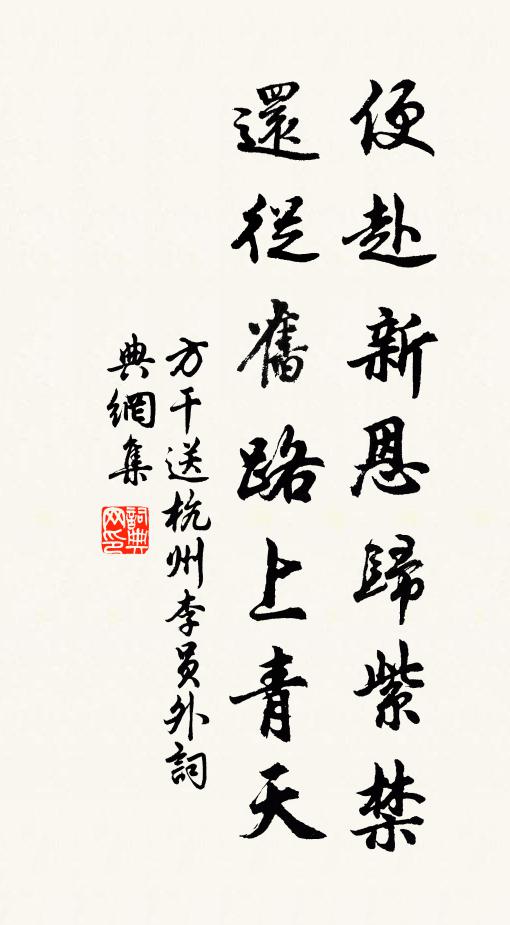 便赴新恩歸紫禁
還從舊路上青天
方干送杭州李員外詞
典網集
詞典
网印